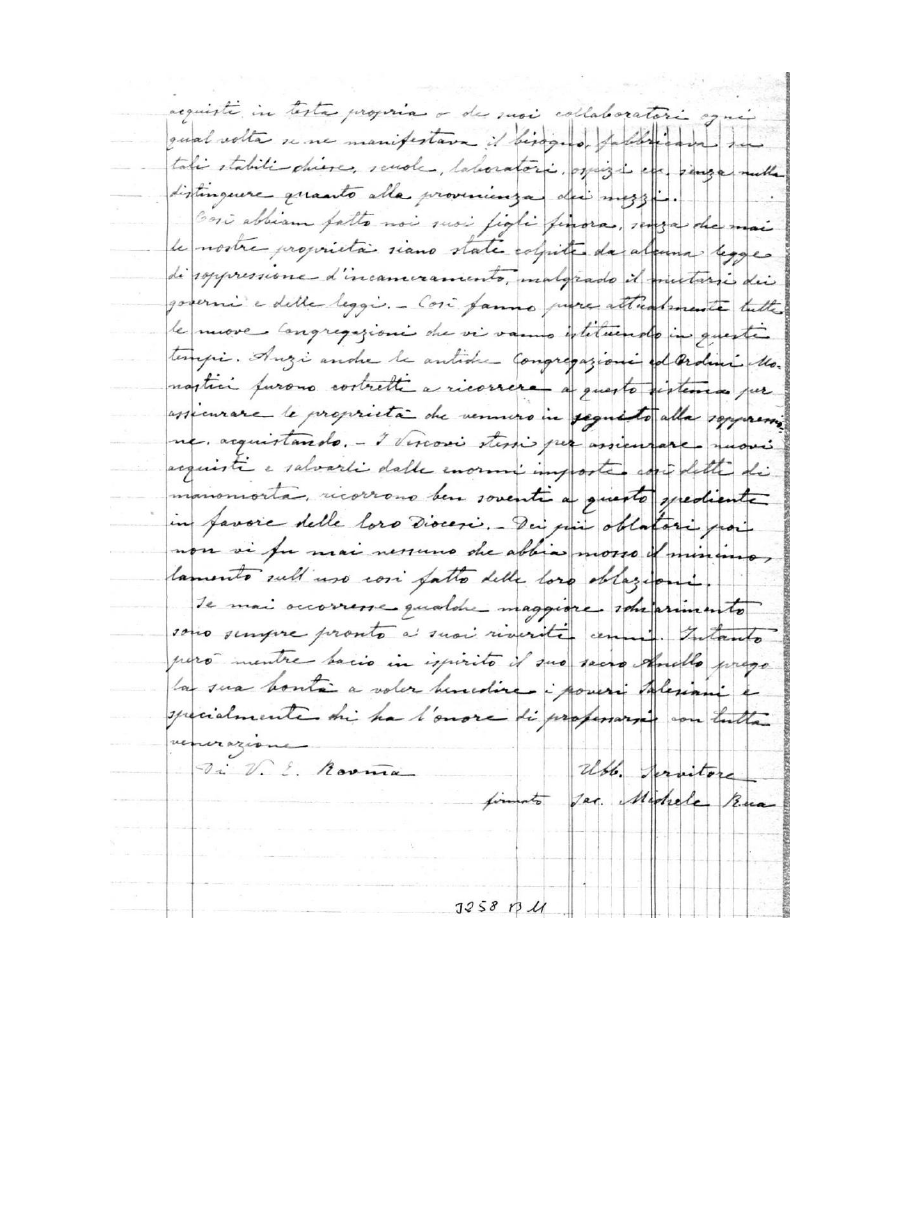 acquisti in testa propria o de suoi collaboratori ogni
qual volta se ne manifestava il bisogno, fabbricava su
tali stabili chiese, scuole, laboratori, ospizi ecc. senza nulla
distinguere quanto alla provenienza dei mezzi.
Così abbiam fatto noi suoi figli finora, senza che mai
le nostre proprietà siano state colpite da alcuna legge
di soppressione d'incameramento, malgrado il mutarsi dei
governi e delle leggi. - Così fanno pure attualmente tutte
le nuove Congregazioni che vi vanno istituendo in questi
tempi. Anzi anche le antiche Congregazioni ed Ordini Mo-
nastici furono costretti a ricorrere a questo sistema per
assicurare le proprietà che vennero in seguito alla soppressio-
ne, acquistando. - I Vescovi stessi per assicurare nuovi
acquisti e salvarli dalle enormi imposte così dette di
manomorta, ricorrono ben soventi a questo spediente
in favore delle loro Diocesi. - Dei pii oblatori poi
non vi fu mai nessuno che abbia mosso il minimo
lamento sull'uso così fatto delle loro oblazioni.
Se mai occorresse qualche maggiore schiarimento
sono sempre pronto a' suoi riveriti cenni. Intanto
però mentre bacio in ispirito il suo sacro Anello prego
la sua bontà a voler benedire i poveri Salesiani e
specialmente chi ha l'onore di professarsi con tutta
venerazione
Di V. E. Rev̄ma Ubb. Servitore
firmato Sac. Michele Rua
3258 B 11